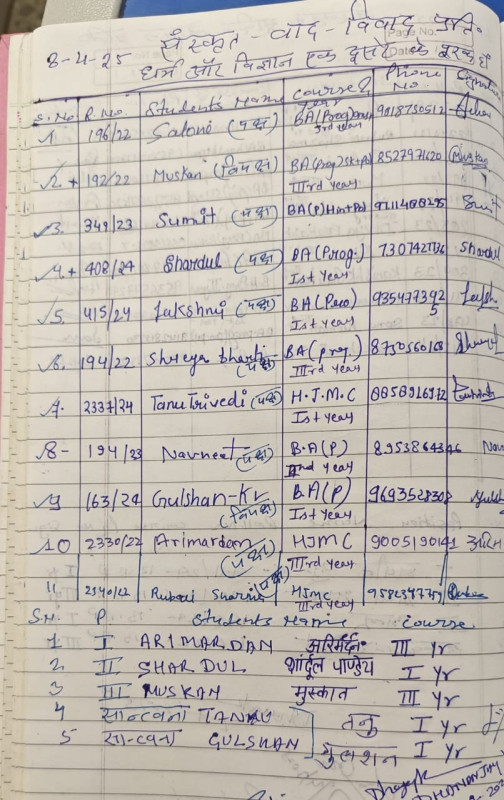 8-4-25 संस्कृत - वाद - विवाद प्रति.
Page No.
Date
धर्म और विज्ञान एक दूसरे के पूरक हैं
S.No R.No. Students Name Course & Year Phone No. Signature
1. 196/22 Saloni (पक्ष) BA(Prog) IIIrd year 9018750512
2. + 192/22 Muskan (विपक्ष) BA(Prog) IIIrd year 8527971620 Muskan
3. 349/23 Sumit (पक्ष) BA(P) Sumit
4. + 408/24 Shardul (पक्ष) BA(Prog.) Ist year Shardul
5. 415/24 Lakshmi (पक्ष) BA(Pro) Ist year 9354773925
6. 194/22 Shreya bharti (पक्ष) BA(prog.) IIIrd year 8750560168
7. 2337/24 Tanu Trivedi (पक्ष) H.J.M.C Ist year
8- 194/23 Navneet (पक्ष) B.A(P) IInd year Nav
9 163/24 Gulshan-Kr (विपक्ष) B.A(P) Ist year 9693528308 Gulsh
10 2330/22 Arimardan (पक्ष) HJMC IIIrd year 9005130141
11 2340/22 (पक्ष) HJMC IIIrd year
S.N. P Students Name Course
1 I ARIMARDAN अरिमर्दन III Yr
2 II SHARDUL शार्दूल पाण्डेय I Yr
3 III MUSKAN मुस्कान III Yr
4 सान्त्वना TANNU तनु I Yr
5 सान्त्वना GULSHAN गुलशन I Yr